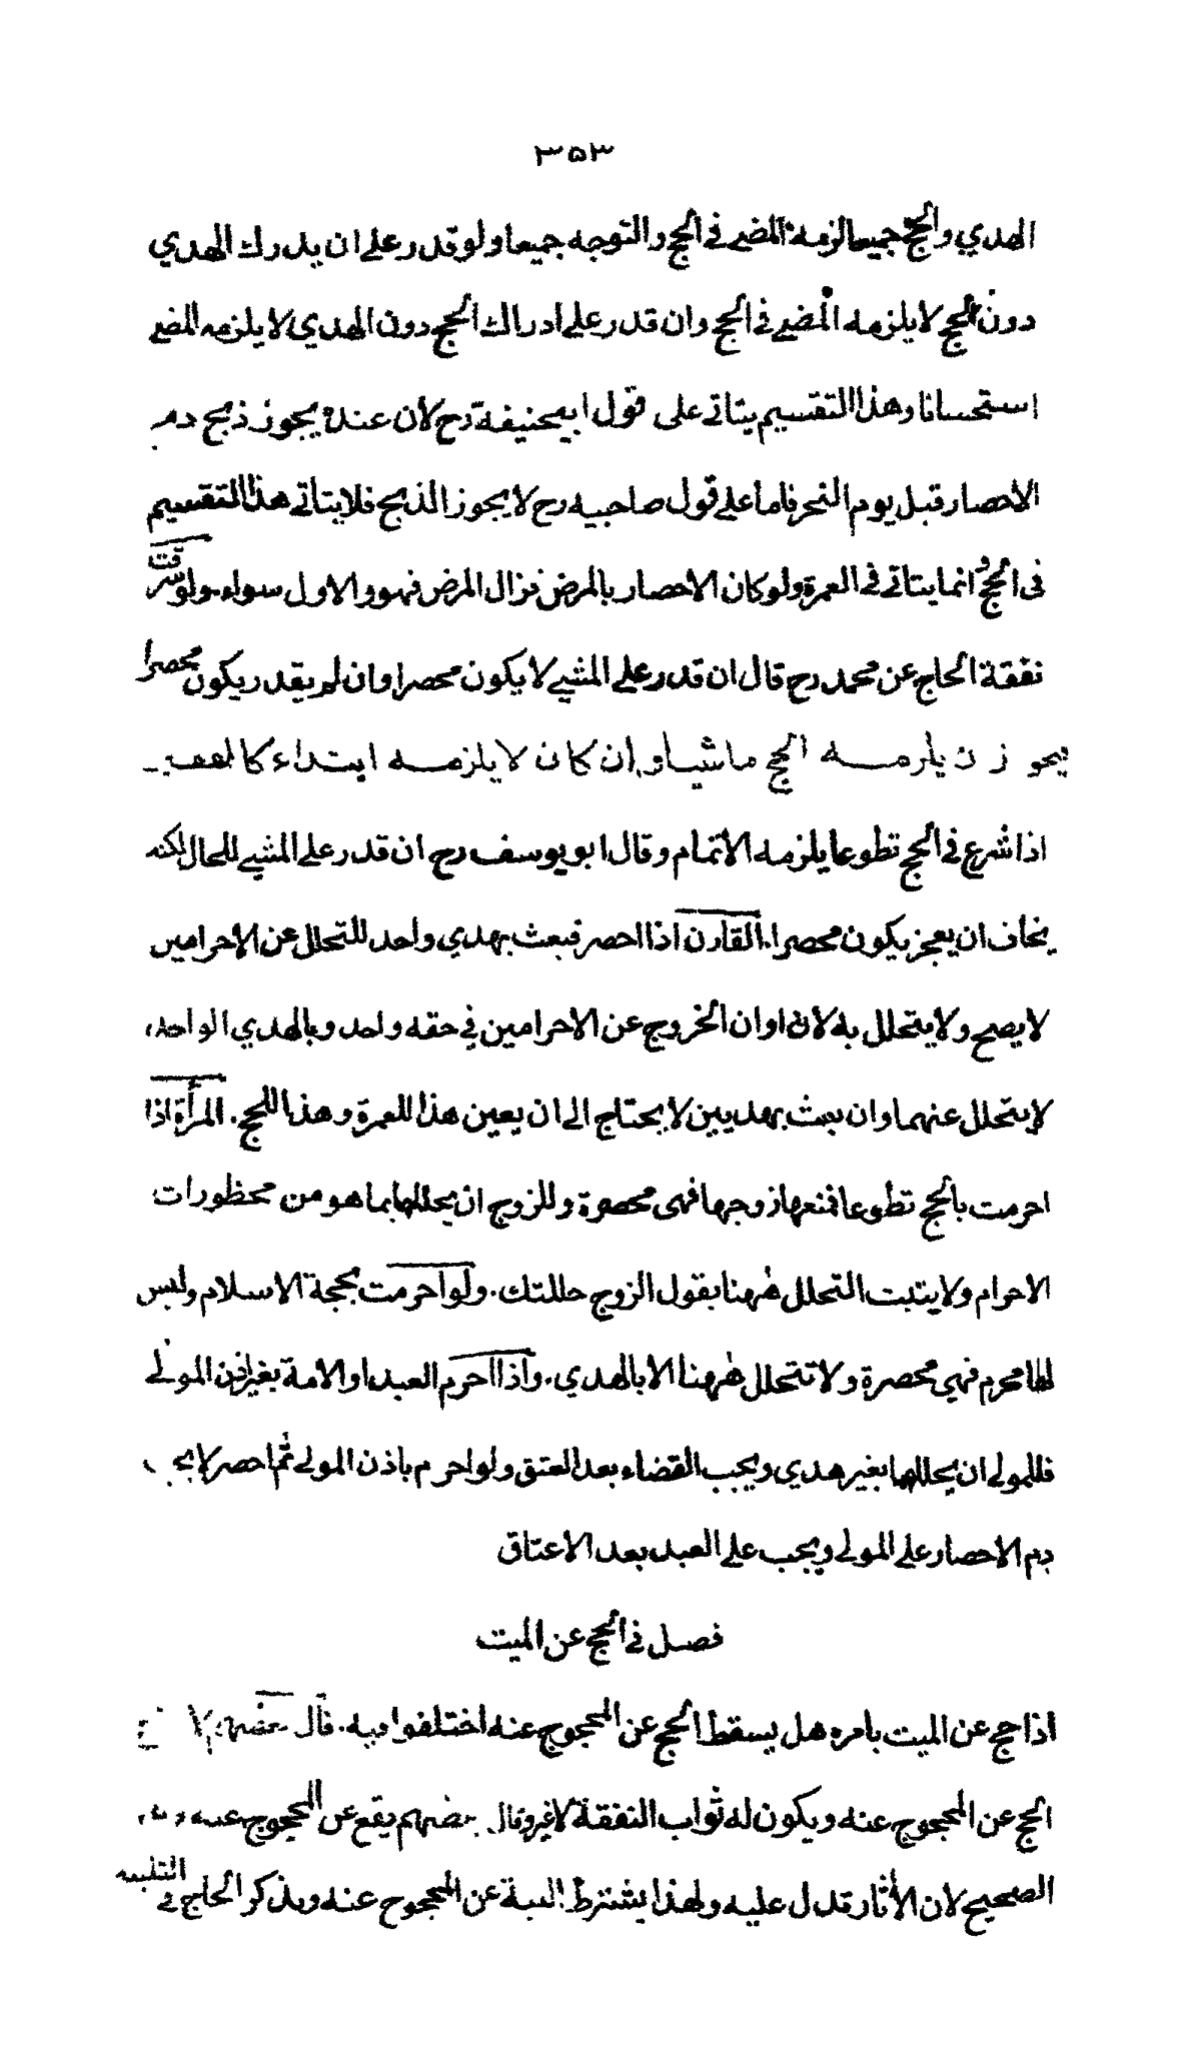 ۳۵۳
الهدي والحج جميعا لزمه المضي في الحج والتوجه جميعا ولو قدر على ان يدرك الهدي
دون الحج لا يلزمه المضي في الحج وان قدر على ادراك الحج دون الهدي لا يلزمه المضي
استحسانا وهذا التقسيم يتاتى على قول ابيحنيفة رح لان عنده يجوز ذبح دم
الاحصار قبل يوم النحر فاما على قول صاحبيه رح لا يجوز الذبح فلا يتاتى هذا التقسيم
فى الحج و انما يتاتى في العمرة ولو كان الاحصار بالمرض فزال المرض فهو والاول سواء . ولو سرقت
نفقة الحاج عن محمد رح قال ان قدر على المشي لا يكون محصرا وان لم يقدر يكون محصرا
يجوز ن يلزمه الحج ماشيا وان كان لا يلزمه ابتداء كالفقير
اذا شرع في الحج تطوعا يلزمه الاتمام وقال ابو يوسف رح ان قدر على المشي للحال لكنه
يخاف ان يعجز يكون محصرا . القارن اذا احصر فبعث بهدي واحد للتحلل عن الاحرامين
لا يصح ولا يتحلل به لان اوان الخروج عن الاحرامين في حقه واحد وبالهدي الواحد
لا يتحلل عنهما وان بعث بهديين لا يحتاج الى ان يعين هذا للعمرة وهذا للحج . المرأة اذا
احرمت بالحج تطوعا فمنعها زوجها فهى محصرة وللزوج ان يحللها بما هو من محظورات
الاحرام ولا يثبت التحلل ههنا بقول الزوج حللتك . ولو احرمت بحجة الاسلام وليس
لها محرم فهي محصرة ولا تتحلل ههنا الا بالهدي . واذا احرم العبد او الامة بغير اذن المولى
فللمولى ان يحللها بغير هدي ويجب القضاء بعد العتق ولو احرم باذن المولى ثم احصر لا يجب
دم الاحصار على المولى ويجب على العبد بعد الاعتاق
فصل في الحج عن الميت
اذا حج عن الميت بامره هل يسقط الحج عن المحجوج عنه اختلفوا فيه . قال بعضهم لا
الحج عن المحجوج عنه ويكون له ثواب النفقة لا غير وقال بعضهم يقع عن المحجوج عنه
الصحيح لان الأثار تدل عليه ولهذا يشترط النية عن المحجوج عنه ويذكر الحاج في التلبية